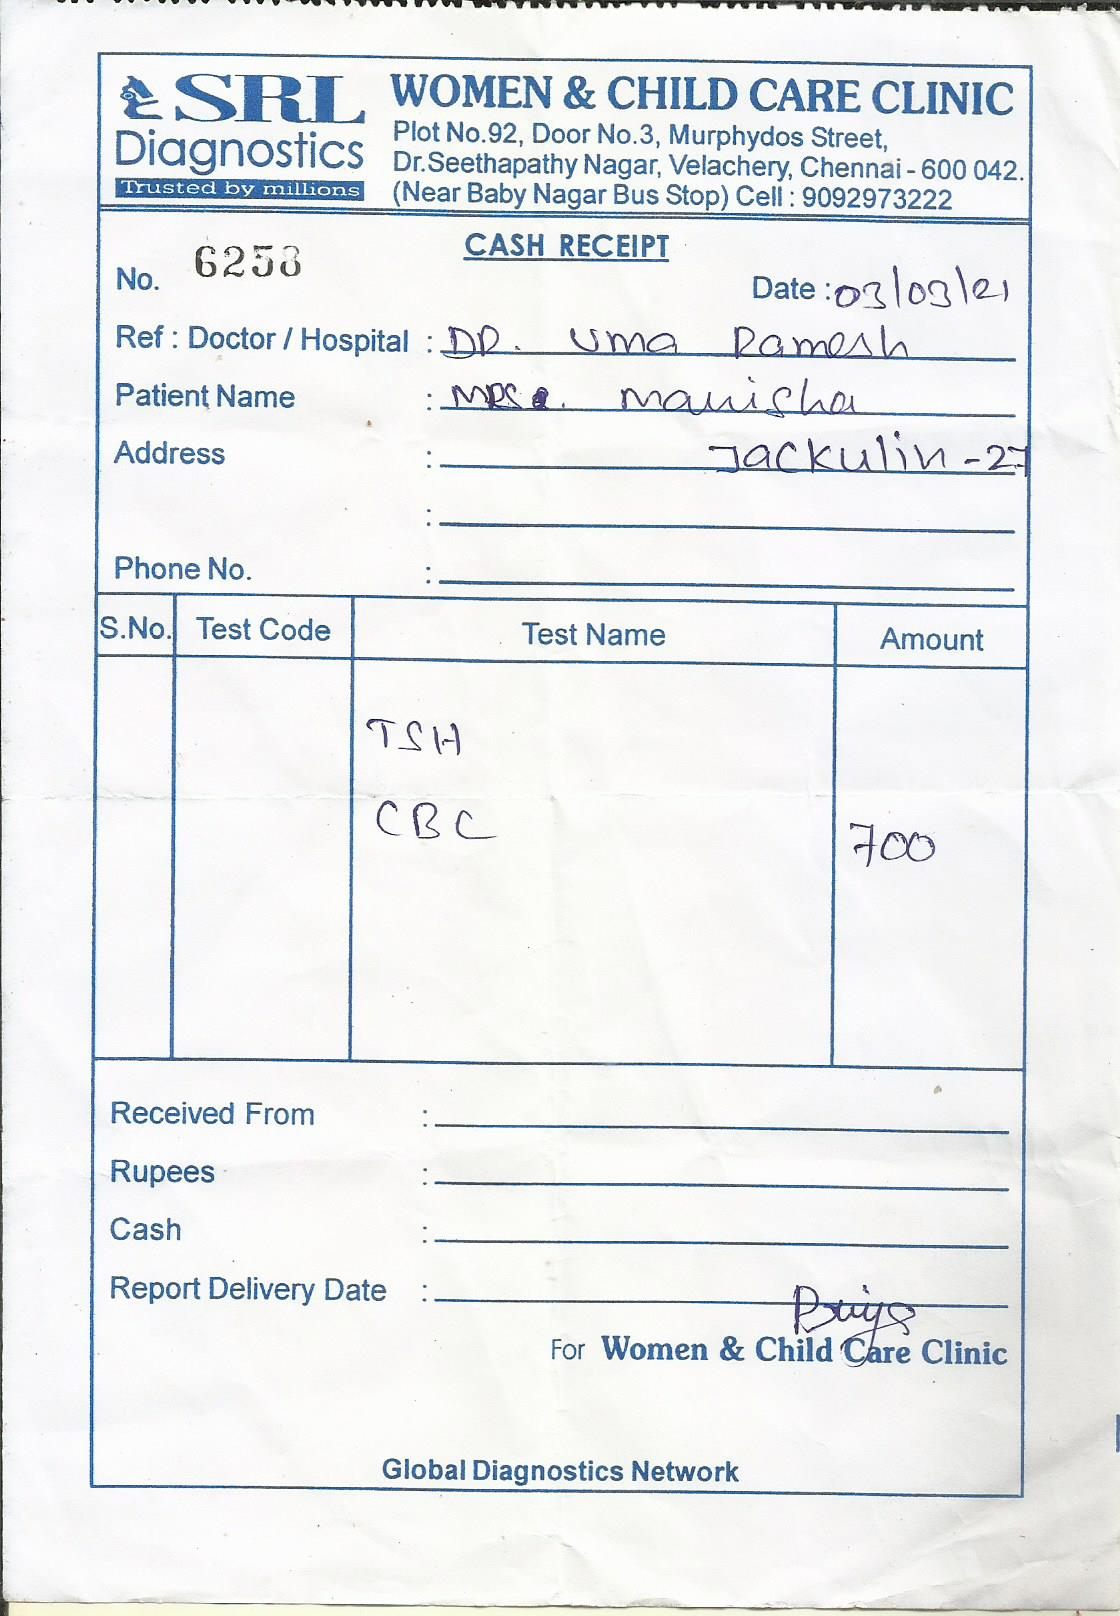 SRL
Diagnostics
Trusted by millions
WOMEN & CHILD CARE CLINIC
Plot No.92, Door No.3, Murphydos Street,
Dr.Seethapathy Nagar, Velachery, Chennai - 600 042.
(Near Baby Nagar Bus Stop) Cell : 9092973222
CASH RECEIPT
No. 6258
Date : 03/03/21
Ref : Doctor / Hospital : DR. Uma Ramesh
Patient Name : MRS. Manisha
Address : Jackulin - 27
:
Phone No. :
S.No. Test Code Test Name Amount
TSH
CBC 700
Received From :
Rupees :
Cash :
Report Delivery Date :
Priya
For Women & Child Care Clinic
Global Diagnostics Network